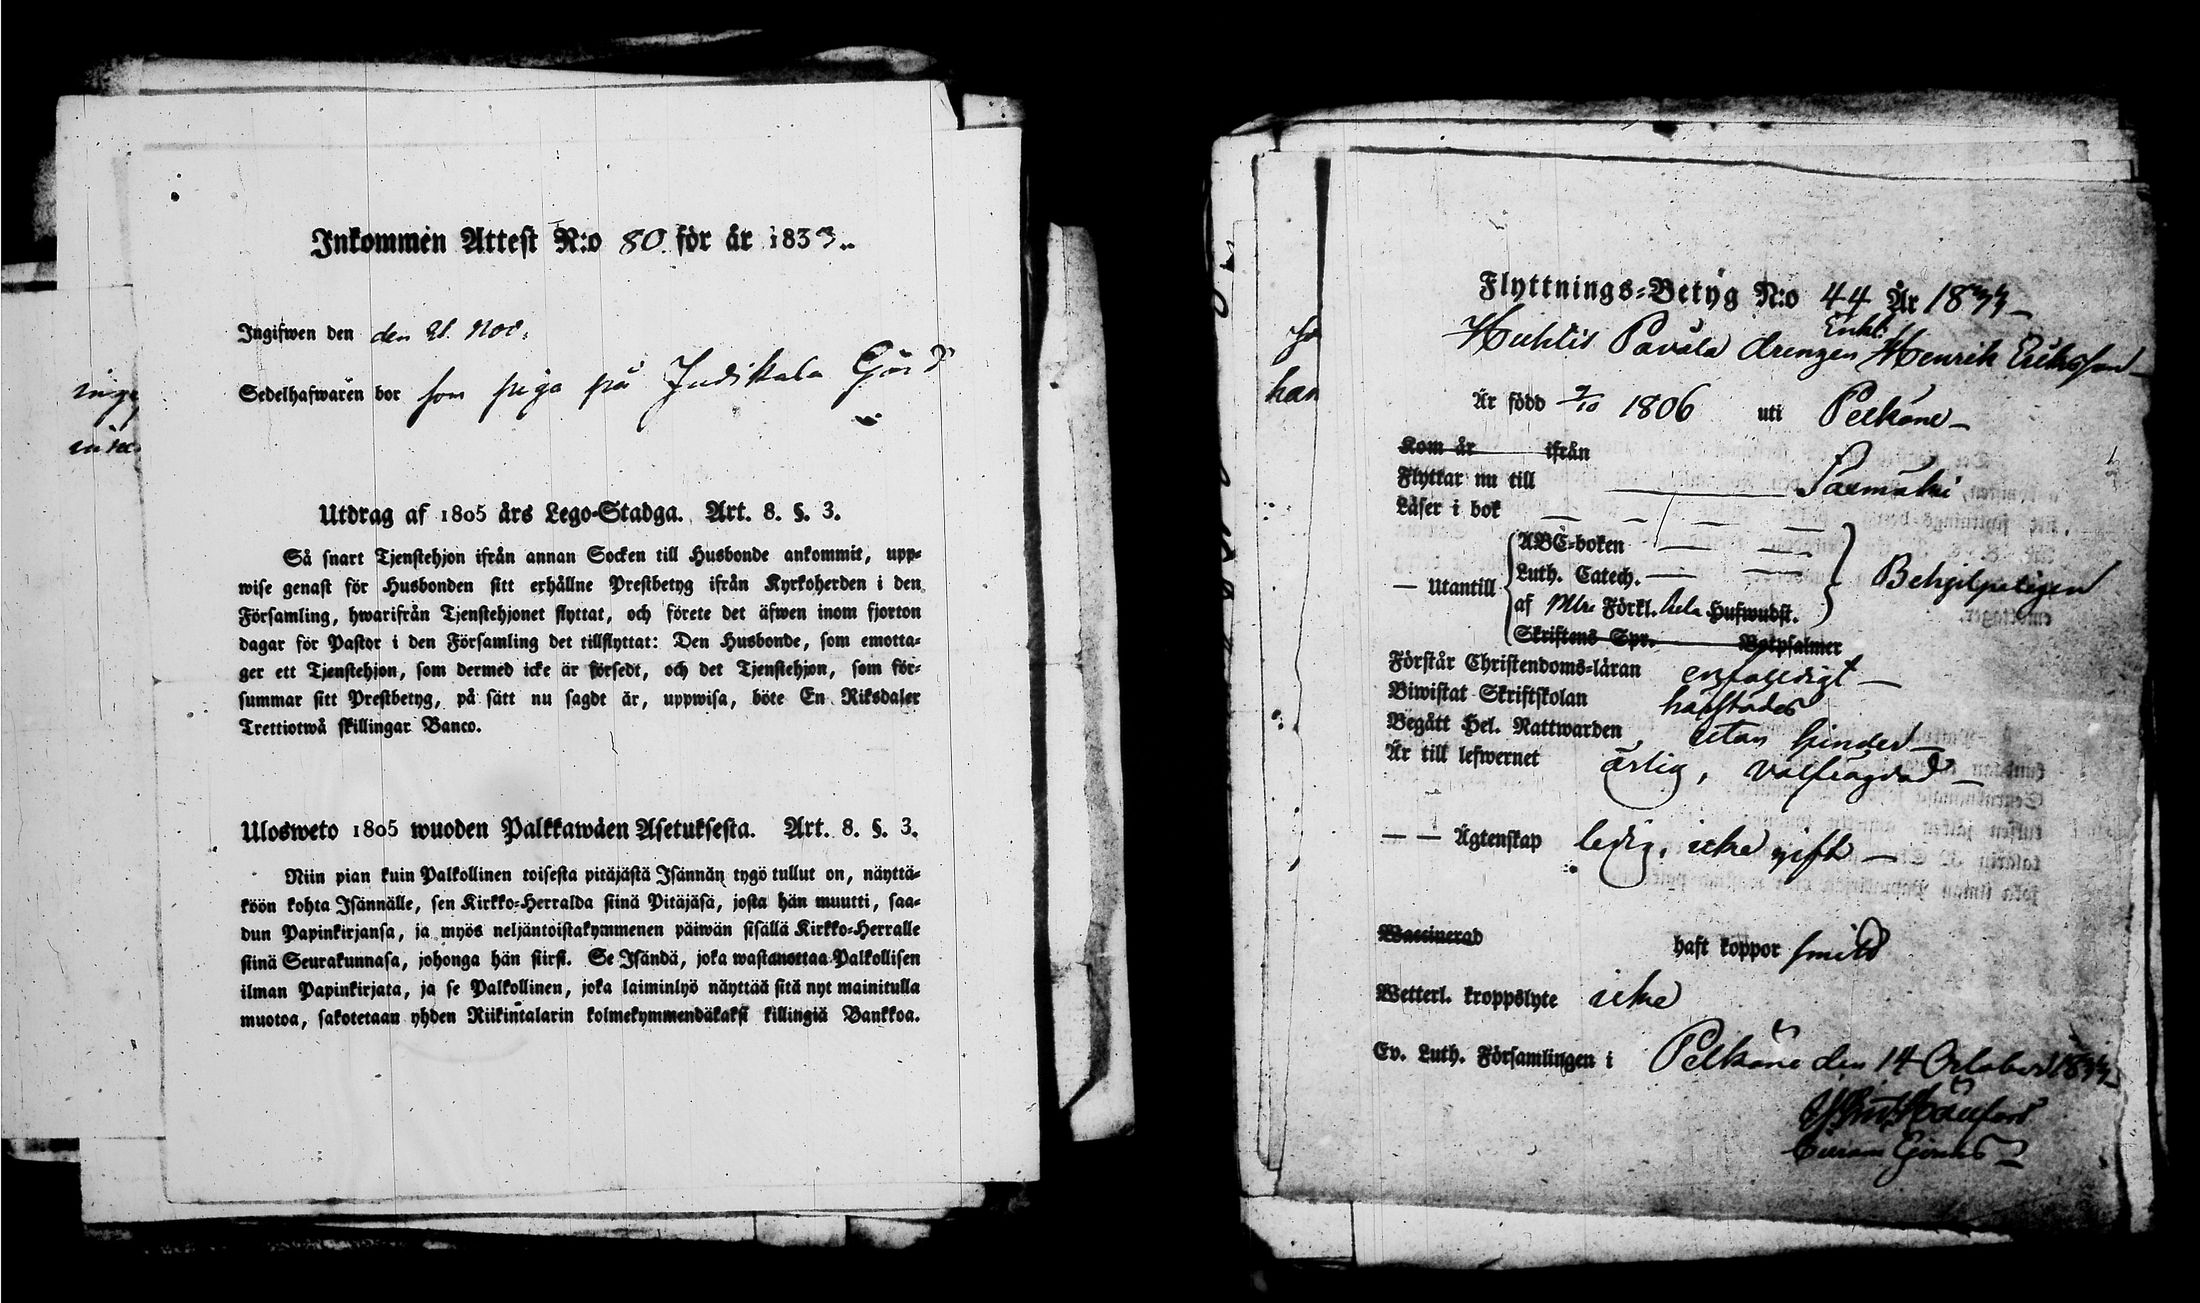 Inkommen Attest N:o 80 för år 1833.
Ingifwen den den 21. Nov:
Sedelhafwaren bor som piga på Judikala Gård
Utdrag af 1805 års Lego-Stadga. Art. 8. §. 3.
Så snart Tjenstehjon ifrån annan Socken till Husbonde ankommit, upp-
wise genast för Husbonden sitt erhållne Prestbetyg ifrån Kyrkoherden i den
Församling, hwarifrån Tjenstehjonet flyttat, och förete det äfwen inom fjorton
dagar för Pastor i den Församling det tillflyttat: Den Husbonde, som emotta-
ger ett Tjenstehjon, som dermed icke är försedt, och det Tjenstehjon, som för-
summar sitt Prestbetyg, på sätt nu sagdt är, uppwisa, böte En Riksdaler
Trettiotwå skillingar Banco.
Ulosweto 1805 wuoden Palkkawäen Asetuksesta. Art. 8. §. 3.
Niin pian kuin Palkollinen toisesta pitäjästä Isännän tygö tullut on, näyttä-
köön kohta Isännälle, sen Kirkko-Herralda siinä Pitäjäsä, josta hän muutti, saa-
dun Papinkirjansa, ja myös neljäntoistakymmenen päiwän sisällä Kirkko-Herralle
siinä Seurakunnasa, johonga hän siirsi. Se Isändä, joka wastanottaa Palkollisen
ilman Papinkirjata, ja se Palkollinen, joka laiminlyö näyttää sitä nyt mainitulla
muotoa, sakotetaan yhden Riikintalarin kolmekymmendäkaksi killingiä Bankkoa.
Flyttnings-Betyg N:o 44 År 1833
Enkl:
Huhtis Pavala drengen Henrik Eriksson
Är född 2/10 1806 uti Pelkäne
Kom år ifrån
Flyttar nu till Säxmäki
Läser i bok
ABC-boken
Luth. Catech.
— Utantill af Förkl. hela Hufwudst.
Behjelpeligen
Skriftens Spr. Botpsalmer
Förstår Christendoms-läran enfalldigt
Biwistat Skriftskolan häfstades
Begått Hel. Nattwarden utan hinder
Är till lefwernet ärlig, välfrägdad
— — Ägtenskap ledig, icke gift
Waccinerad haft koppor
Wetterl. kroppslyte icke
Ev. Luth. Församlingen i Pelkäne den 14 October 1833